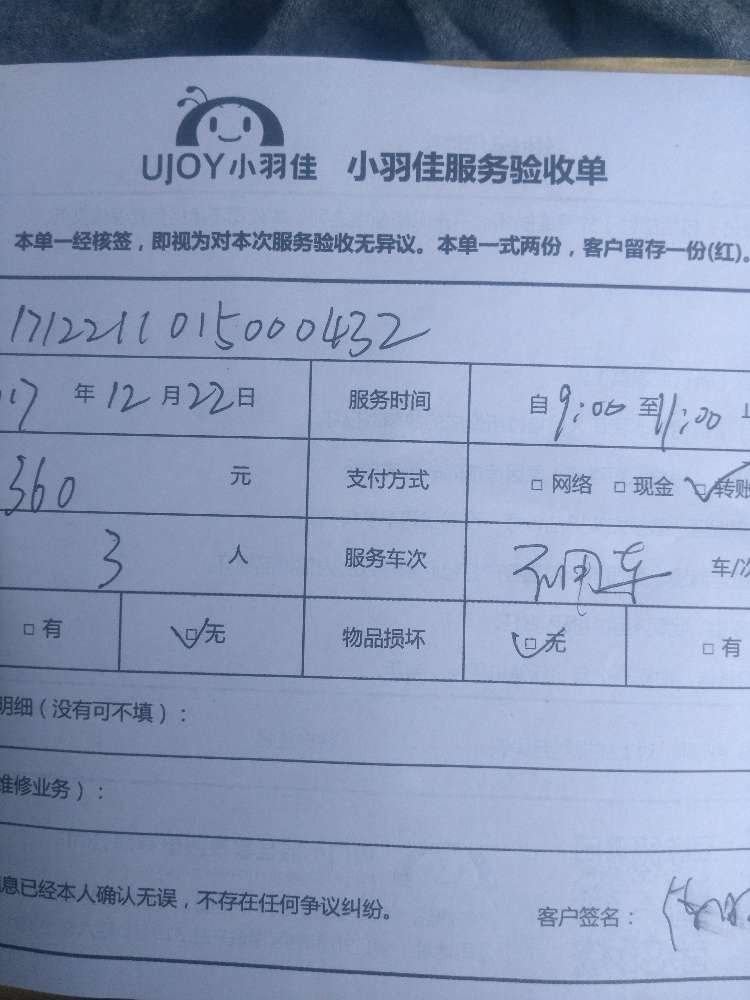 UJOY小羽佳 小羽佳服务验收单
本单一经核签，即视为对本次服务验收无异议。本单一式两份，客户留存一份(红)。
1712211015000432
17 年 12 月 22 日 服务时间 自 9:00 至 11:00
360 元 支付方式 □ 网络 □ 现金 □ 转账
3 人 服务车次 不用车 车/次
□ 有 □ 无 物品损坏 □ 无 □ 有
明细（没有可不填）：
维修业务）：
息已经本人确认无误，不存在任何争议纠纷。
客户签名：